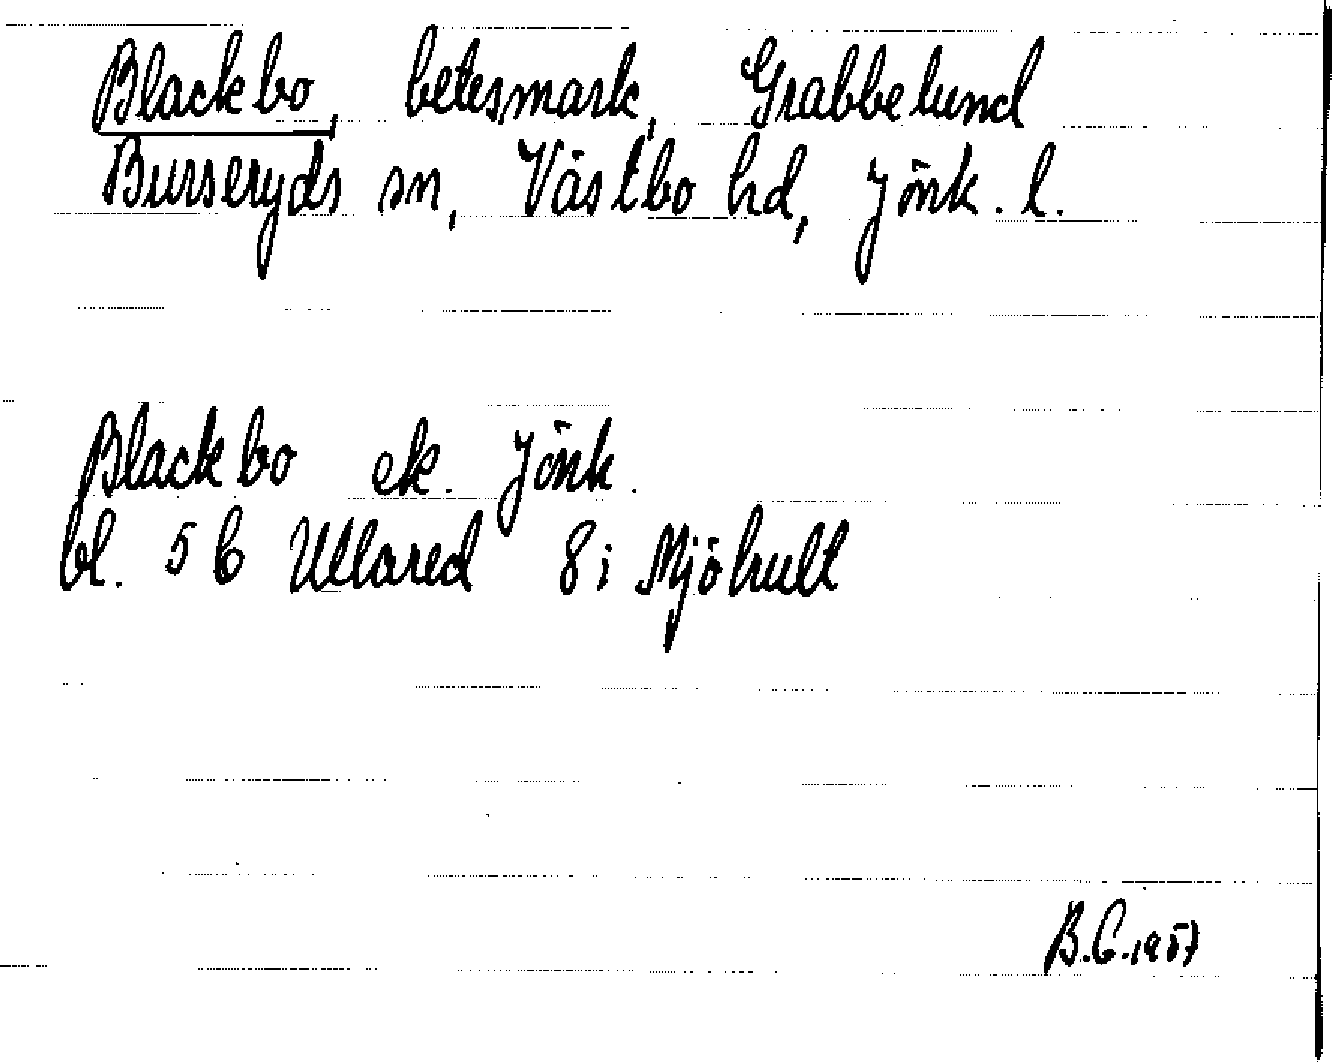 Blackbo, betesmark, Grabbelund
Burseryds sn, Västbo hd, Jönk. l.
Blackbo ek. Jönk.
bl. 5 C Ullared 8 i Mjöhult
B.C. 1957